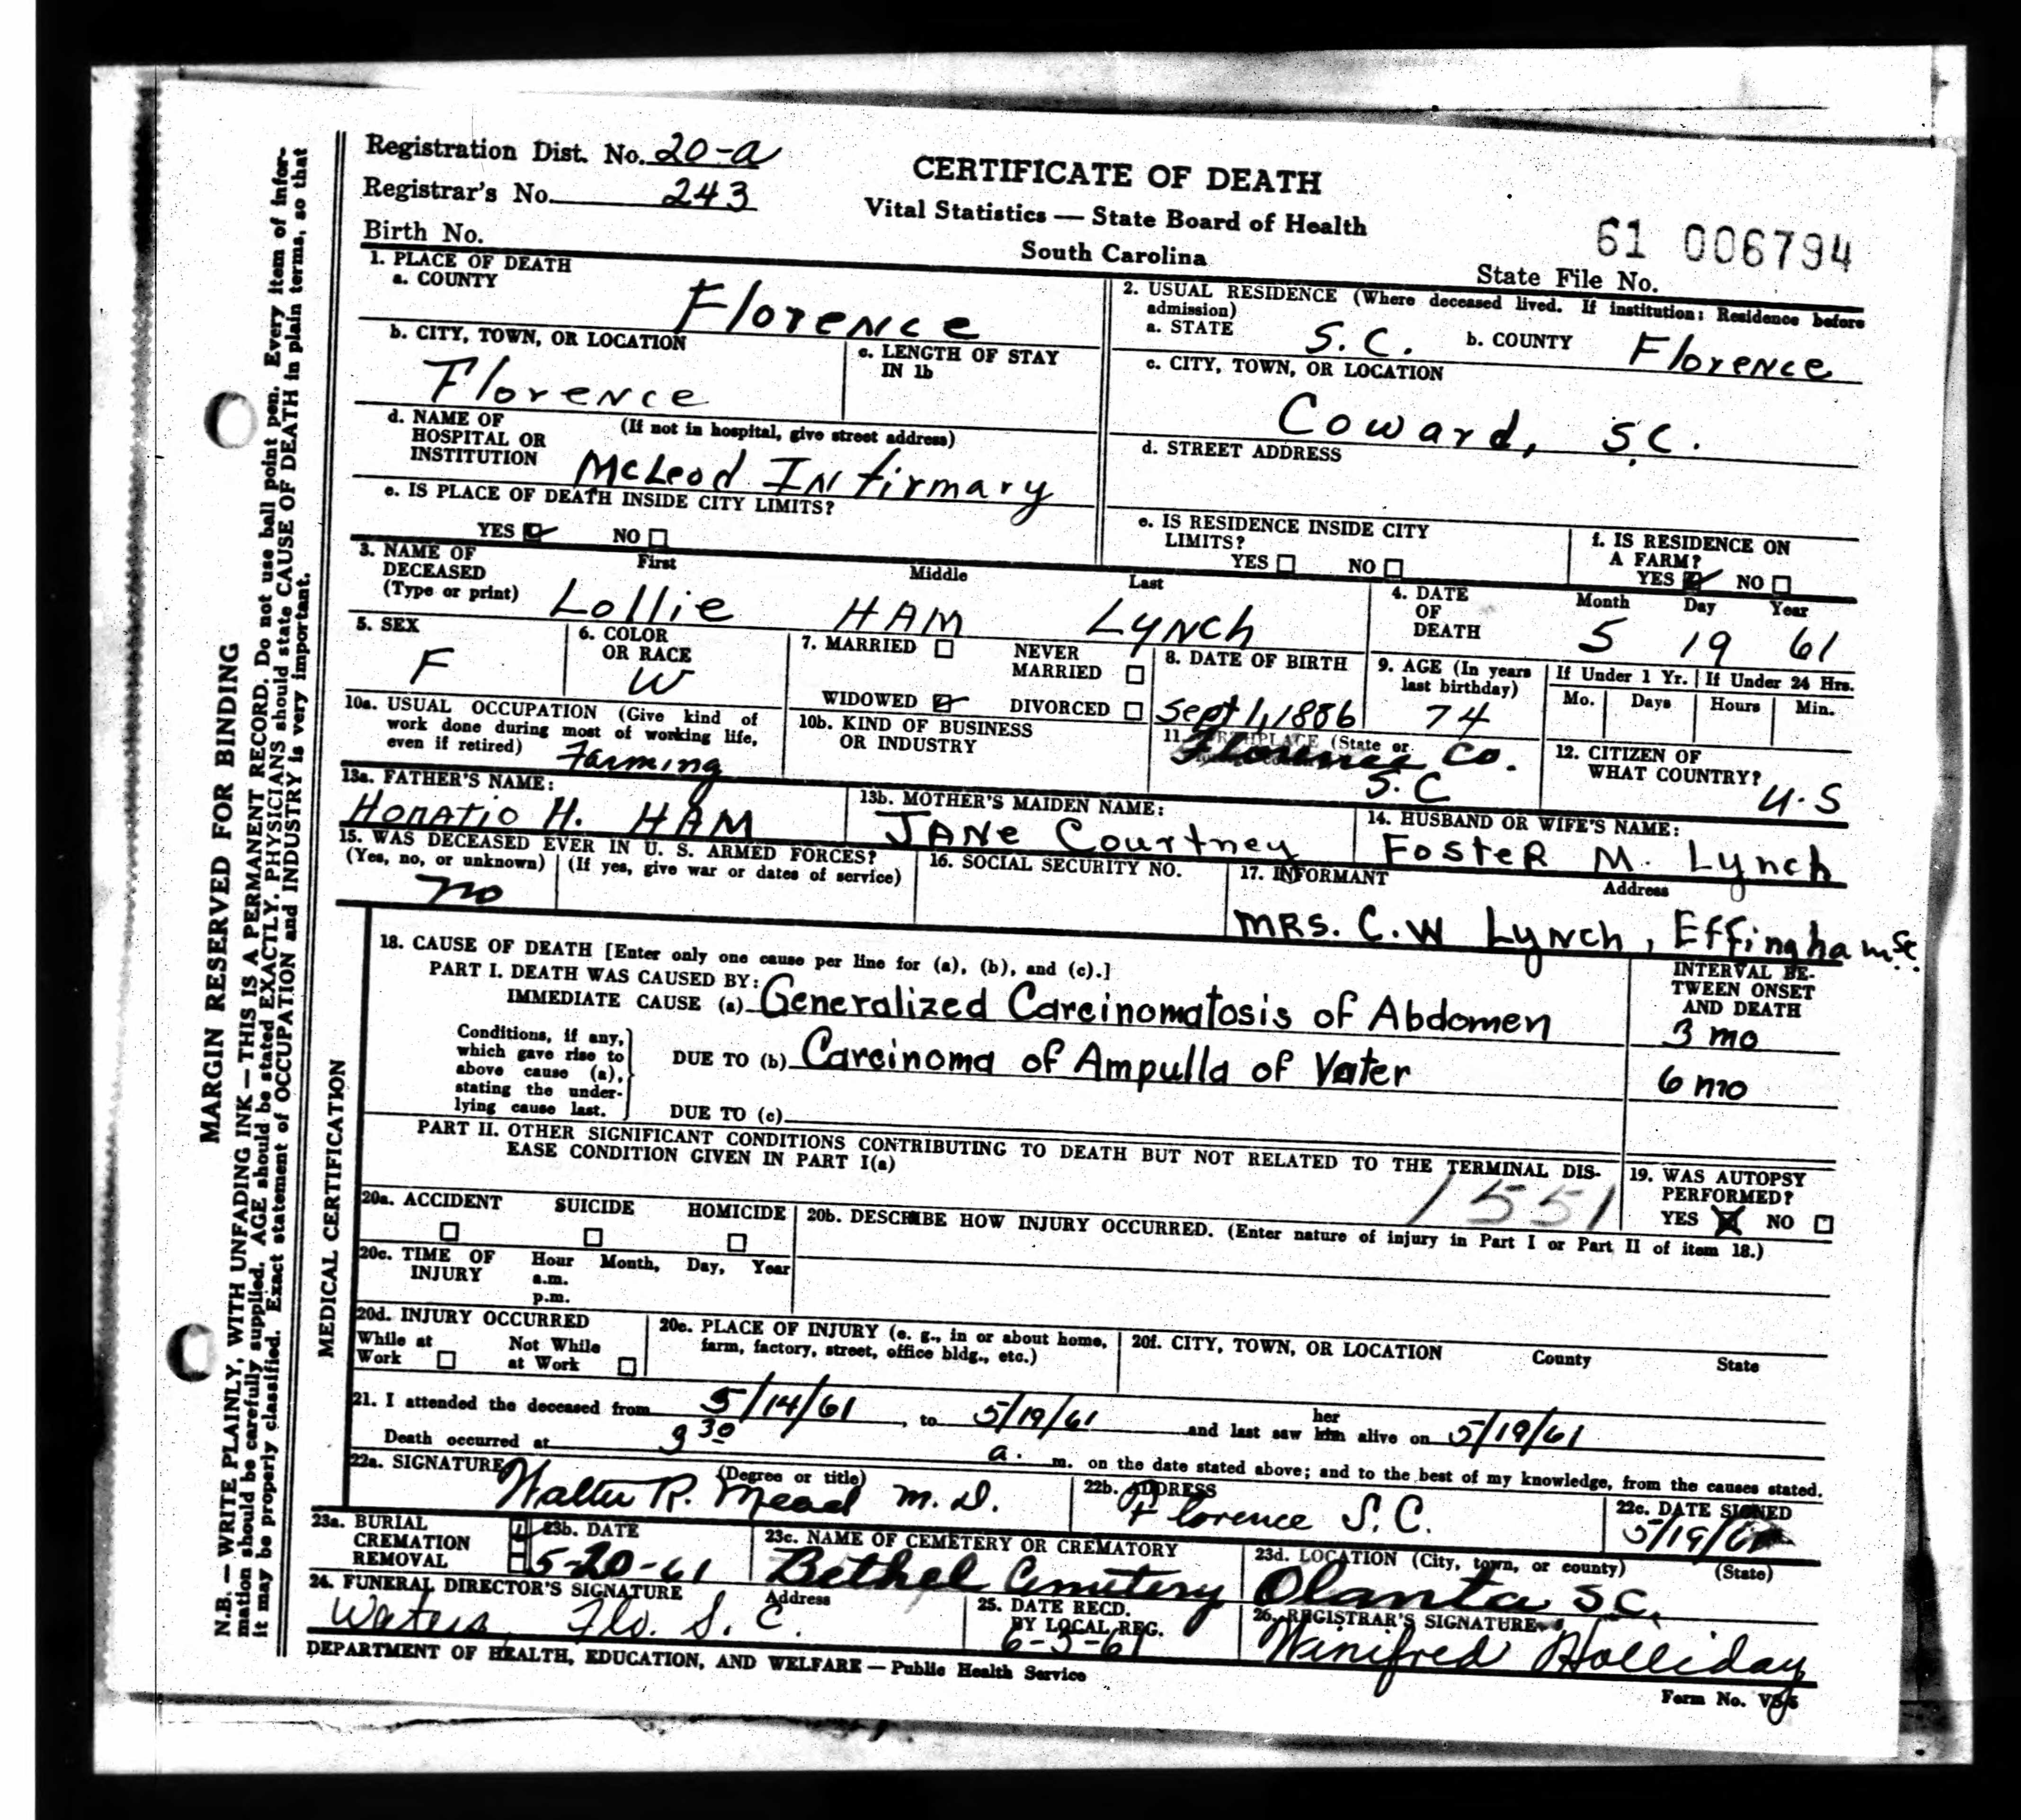 Registration Dist. No. 20-a
Registrar's No. 243
Birth No.
CERTIFICATE OF DEATH
Vital Statistics — State Board of Health
South Carolina
61 006794
State File No.
1. PLACE OF DEATH
a. COUNTY
Florence
b. CITY, TOWN, OR LOCATION
Florence
c. LENGTH OF STAY
IN 1b
d. NAME OF
HOSPITAL OR
INSTITUTION
(If not in hospital, give street address)
McLeod Infirmary
e. IS PLACE OF DEATH INSIDE CITY LIMITS?
YES NO
2. USUAL RESIDENCE (Where deceased lived. If institution: Residence before
admission)
a. STATE S.C. b. COUNTY Florence
c. CITY, TOWN, OR LOCATION
Coward, S.C.
d. STREET ADDRESS
e. IS RESIDENCE INSIDE CITY
LIMITS?
YES NO
f. IS RESIDENCE ON
A FARM?
YES NO
3. NAME OF
DECEASED
(Type or print)
First Middle Last
Lollie HAM Lynch
4. DATE
OF
DEATH
Month Day Year
5 19 61
5. SEX
F
6. COLOR
OR RACE
W
7. MARRIED NEVER
MARRIED
WIDOWED DIVORCED
8. DATE OF BIRTH
Sept 1, 1886
9. AGE (In years
last birthday)
74
If Under 1 Yr. If Under 24 Hrs.
Mo. Days Hours Min.
10a. USUAL OCCUPATION (Give kind of
work done during most of working life,
even if retired) Farming
10b. KIND OF BUSINESS
OR INDUSTRY
11. BIRTHPLACE (State or
Florence Co.
S.C
12. CITIZEN OF
WHAT COUNTRY?
U.S
13a. FATHER'S NAME:
Horatio H. HAM
13b. MOTHER'S MAIDEN NAME:
JANe Courtney
14. HUSBAND OR WIFE'S NAME:
Foster M. Lynch
15. WAS DECEASED EVER IN U. S. ARMED FORCES?
(Yes, no, or unknown) (If yes, give war or dates of service)
no
16. SOCIAL SECURITY NO.
17. INFORMANT Address
MRS. C.W Lynch, Effingham S.C.
MEDICAL CERTIFICATION
18. CAUSE OF DEATH [Enter only one cause per line for (a), (b), and (c).]
PART I. DEATH WAS CAUSED BY:
IMMEDIATE CAUSE (a) Generalized Carcinomatosis of Abdomen
INTERVAL BE-
TWEEN ONSET
AND DEATH
3 mo
Conditions, if any,
which gave rise to
above cause (a),
stating the under-
lying cause last.
DUE TO (b) Carcinoma of Ampulla of Vater
6 mo
DUE TO (c)
PART II. OTHER SIGNIFICANT CONDITIONS CONTRIBUTING TO DEATH BUT NOT RELATED TO THE TERMINAL DIS-
EASE CONDITION GIVEN IN PART I(a)
1551
19. WAS AUTOPSY
PERFORMED?
YES NO
20a. ACCIDENT SUICIDE HOMICIDE
20b. DESCRIBE HOW INJURY OCCURRED. (Enter nature of injury in Part I or Part II of item 18.)
20c. TIME OF
INJURY
Hour Month, Day, Year
a.m.
p.m.
20d. INJURY OCCURRED
While at
Work
Not While
at Work
20e. PLACE OF INJURY (e. g., in or about home,
farm, factory, street, office bldg., etc.)
20f. CITY, TOWN, OR LOCATION County State
21. I attended the deceased from 5/14/61, to 5/19/61 and last saw her him alive on 5/19/61
Death occurred at 9 30 a. m. on the date stated above; and to the best of my knowledge, from the causes stated.
22a. SIGNATURE (Degree or title)
Walter R. Mead M.D.
22b. ADDRESS
Florence S.C.
22c. DATE SIGNED
5/19/61
23a. BURIAL
CREMATION
REMOVAL
23b. DATE
5-20-61
23c. NAME OF CEMETERY OR CREMATORY
Bethel Cemetery
23d. LOCATION (City, town, or county) (State)
Olanta S.C.
24. FUNERAL DIRECTOR'S SIGNATURE Address
Waters Flo. S. C.
25. DATE RECD.
BY LOCAL REG.
6-5-61
26. REGISTRAR'S SIGNATURE
Winifred Holliday
DEPARTMENT OF HEALTH, EDUCATION, AND WELFARE — Public Health Service
Form No.
MARGIN RESERVED FOR BINDING
N.B. — WRITE PLAINLY, WITH UNFADING INK — THIS IS A PERMANENT RECORD. Do not use ball point pen. Every item of infor-
mation should be carefully supplied. AGE should be stated EXACTLY. PHYSICIANS should state CAUSE OF DEATH in plain terms, so that
it may be properly classified. Exact statement of OCCUPATION and INDUSTRY is very important.